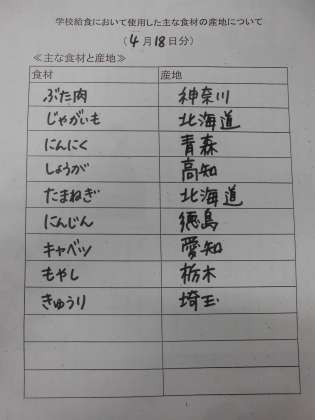 学校給食において使用した主な食材の産地について
(4月18日分)
≪主な食材と産地≫
食材 産地
ぶた肉 神奈川
じゃがいも 北海道
にんにく 青森
しょうが 高知
たまねぎ 北海道
にんじん 徳島
キャベツ 愛知
もやし 栃木
きゅうり 埼玉